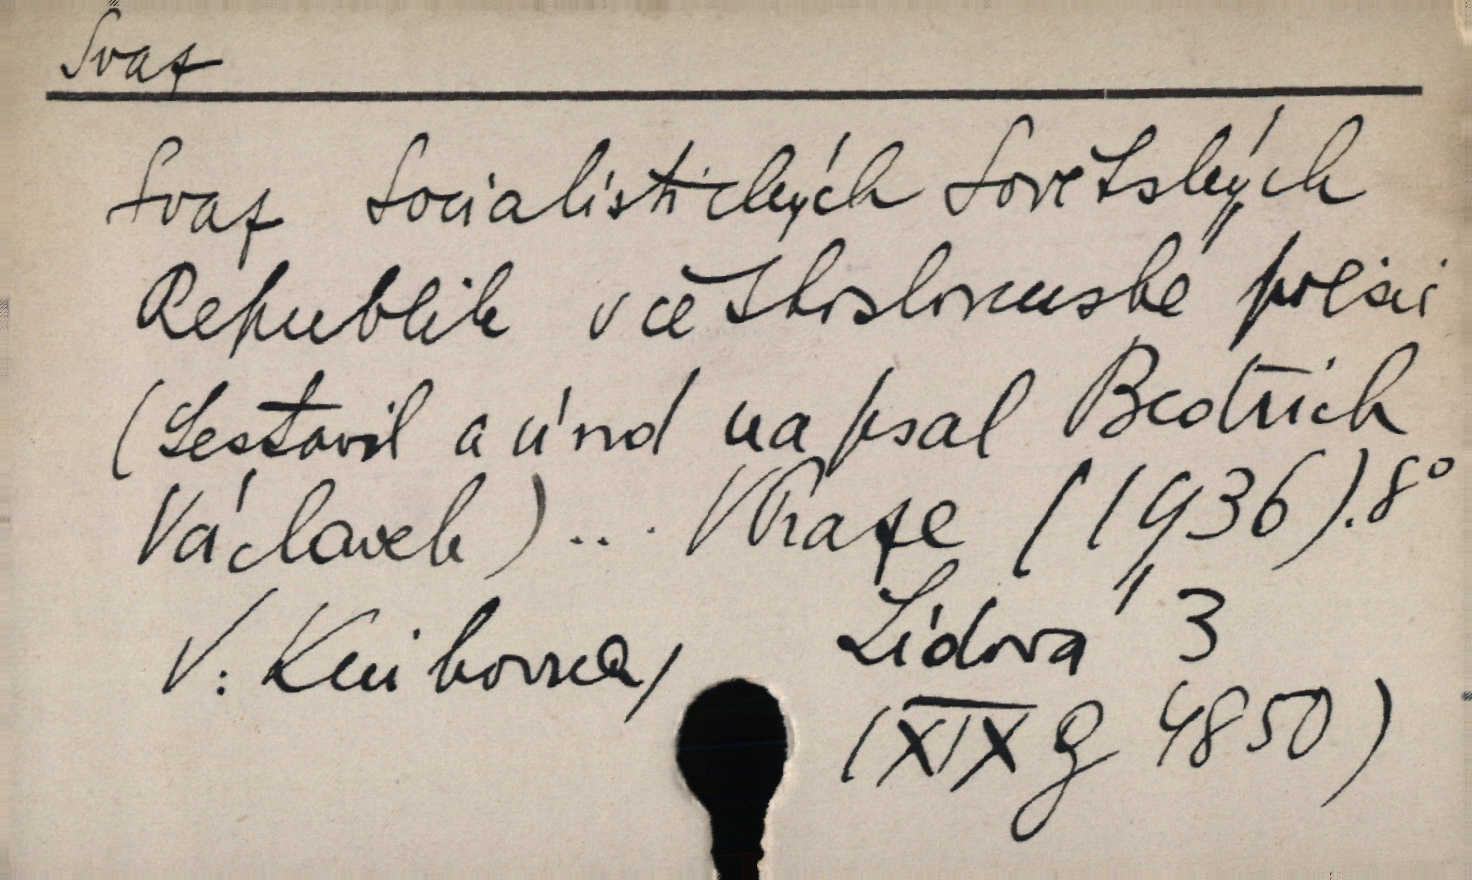 Svaz
Svaz Socialistických Sovětských
Republik v československé poesii
(Sestavil a úvod napsal Bedřich
Václavek)... V Praze (1936). 8°
V: Knihovna, Lidová 3
(XIX g 4850)